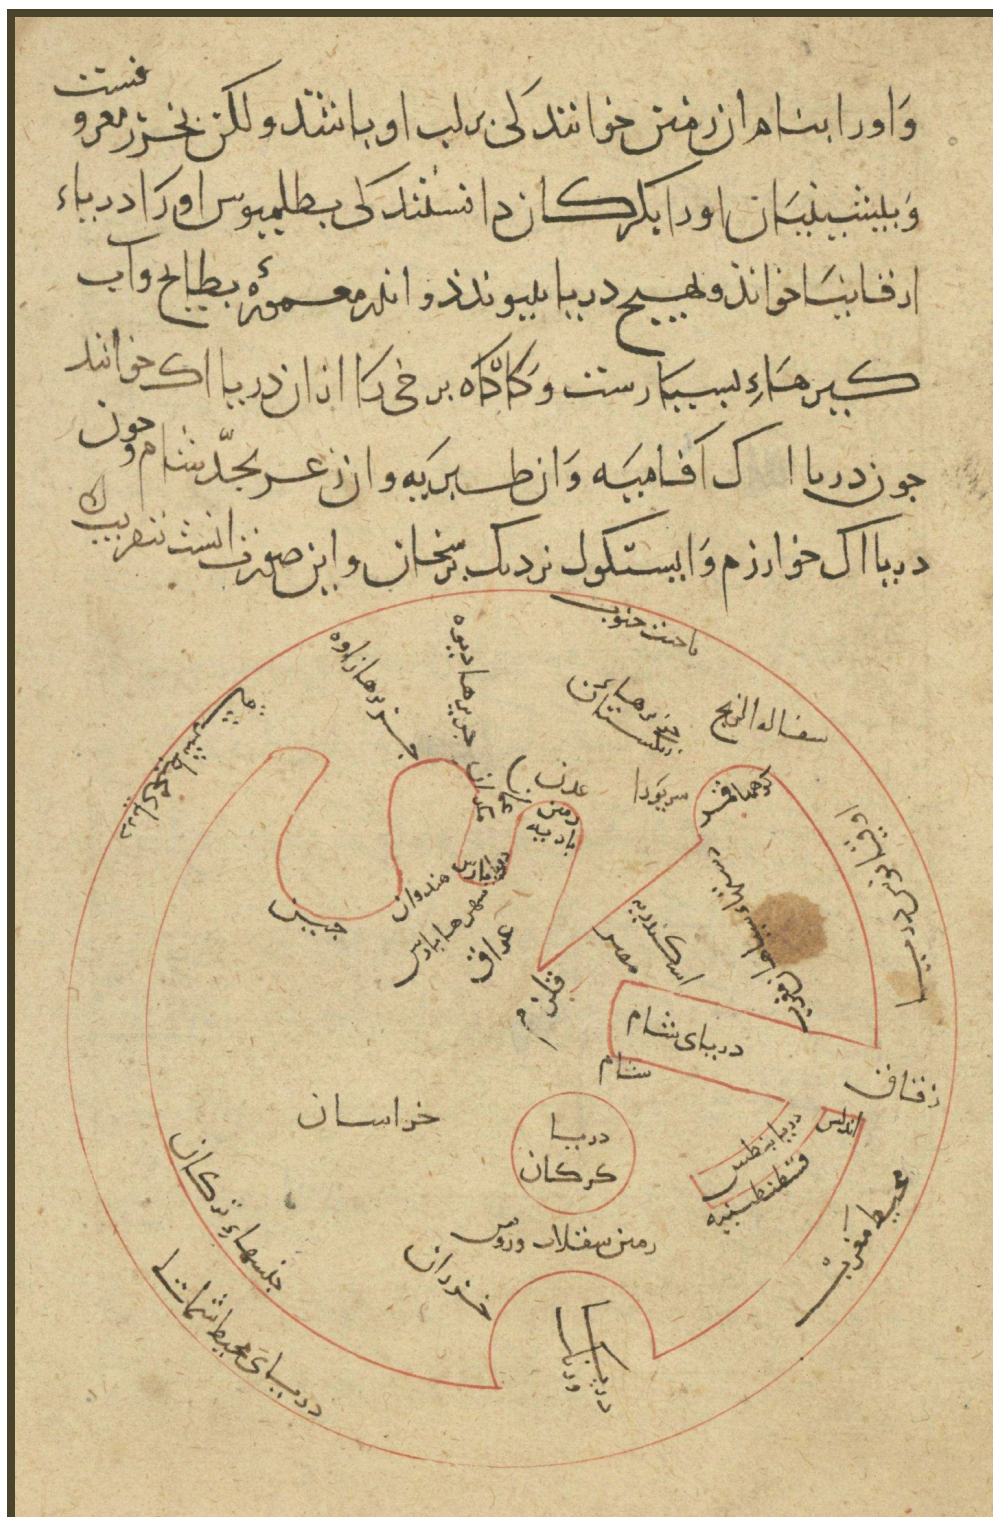 و اورا بنام ان زمین خوانند کی بر لب او باشند ولکن بخزر معروفست
و پیشینیان اورا بکرکان دانستند کی بطلمیوس اورا درباء
ارقانیا خواند و بهیچ دریا نپیوندد و اندر معموره بطایح و آب
کیرهاء بسیارست و کاه کاه برخی را ازان دریااک خوانند
جون دریااک افامیه و ان طبریه و ان زغر بحد شام و جون
دریااک خوارزم و ابیسکول نزدیک برسخان و این صورت انست بتقریب
ناحیت جنوب
سفاله الزنج
جزیرهاء زنگستان
جزیرها دیبوه
جزیرها زاوه
دریای محیط
عدن
زمین بادیه
عمان
مکران
کوهها قمر
پارس
هندوان
شهرها
عراق
جین
قلزم
مصر
اسکندریه
دریای شام
شام
زقاق
اندلس
دریا بنطس
قسطنطینیه
محیط مغرب
خراسان
دریا
کرکان
زمین سقلاب و روس
خزران
جنسهاء ترکان
دریای محیط شمال
دریا ورنک